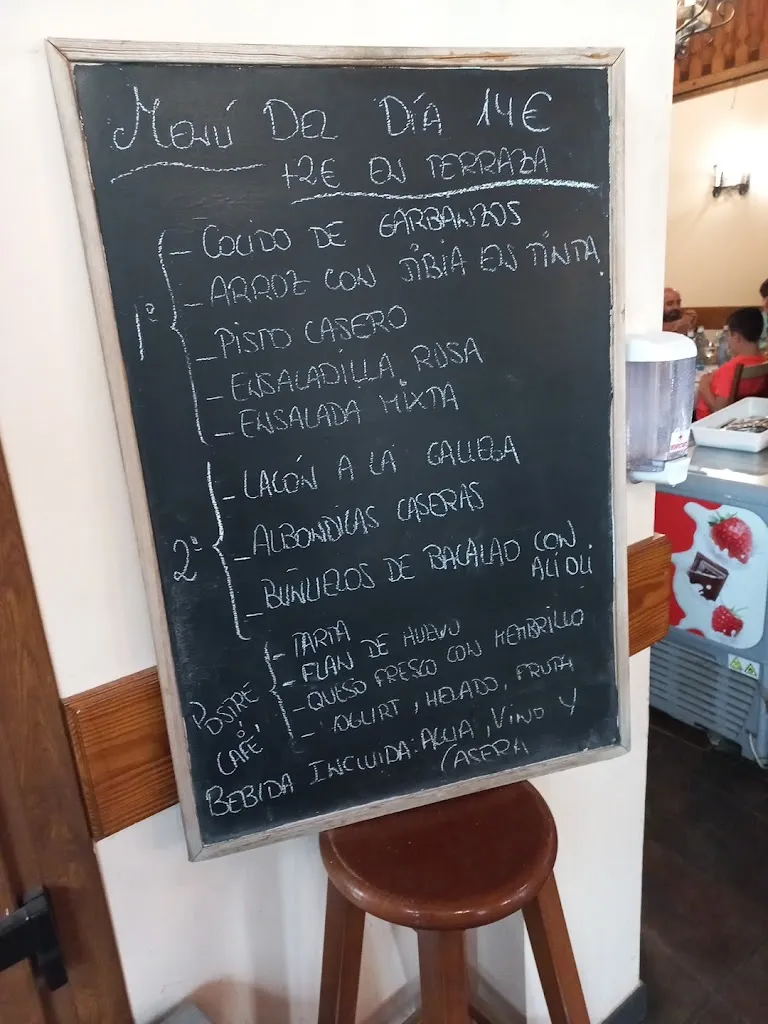 Menú Del Día 14€
+2€ en terraza
1º
- Cocido de garbanzos
- Arroz con jibia en tinta
- Pisto casero
- Ensaladilla rusa
- Ensalada mixta
2º
- Lacón a la gallega
- Albondigas caseras
- Buñuelos de bacalao con
alioli
Postre
o
café
- Tarta
- Flan de huevo
- Queso fresco con membrillo
- Yogurt, helado, fruta
Bebida incluida: agua, vino y
casera